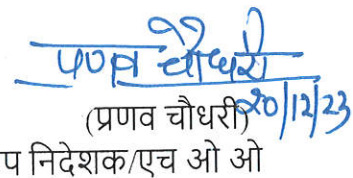 प्रणव चौधरी
20/12/23
(प्रणव चौधरी)
प निदेशक/एच ओ ओ